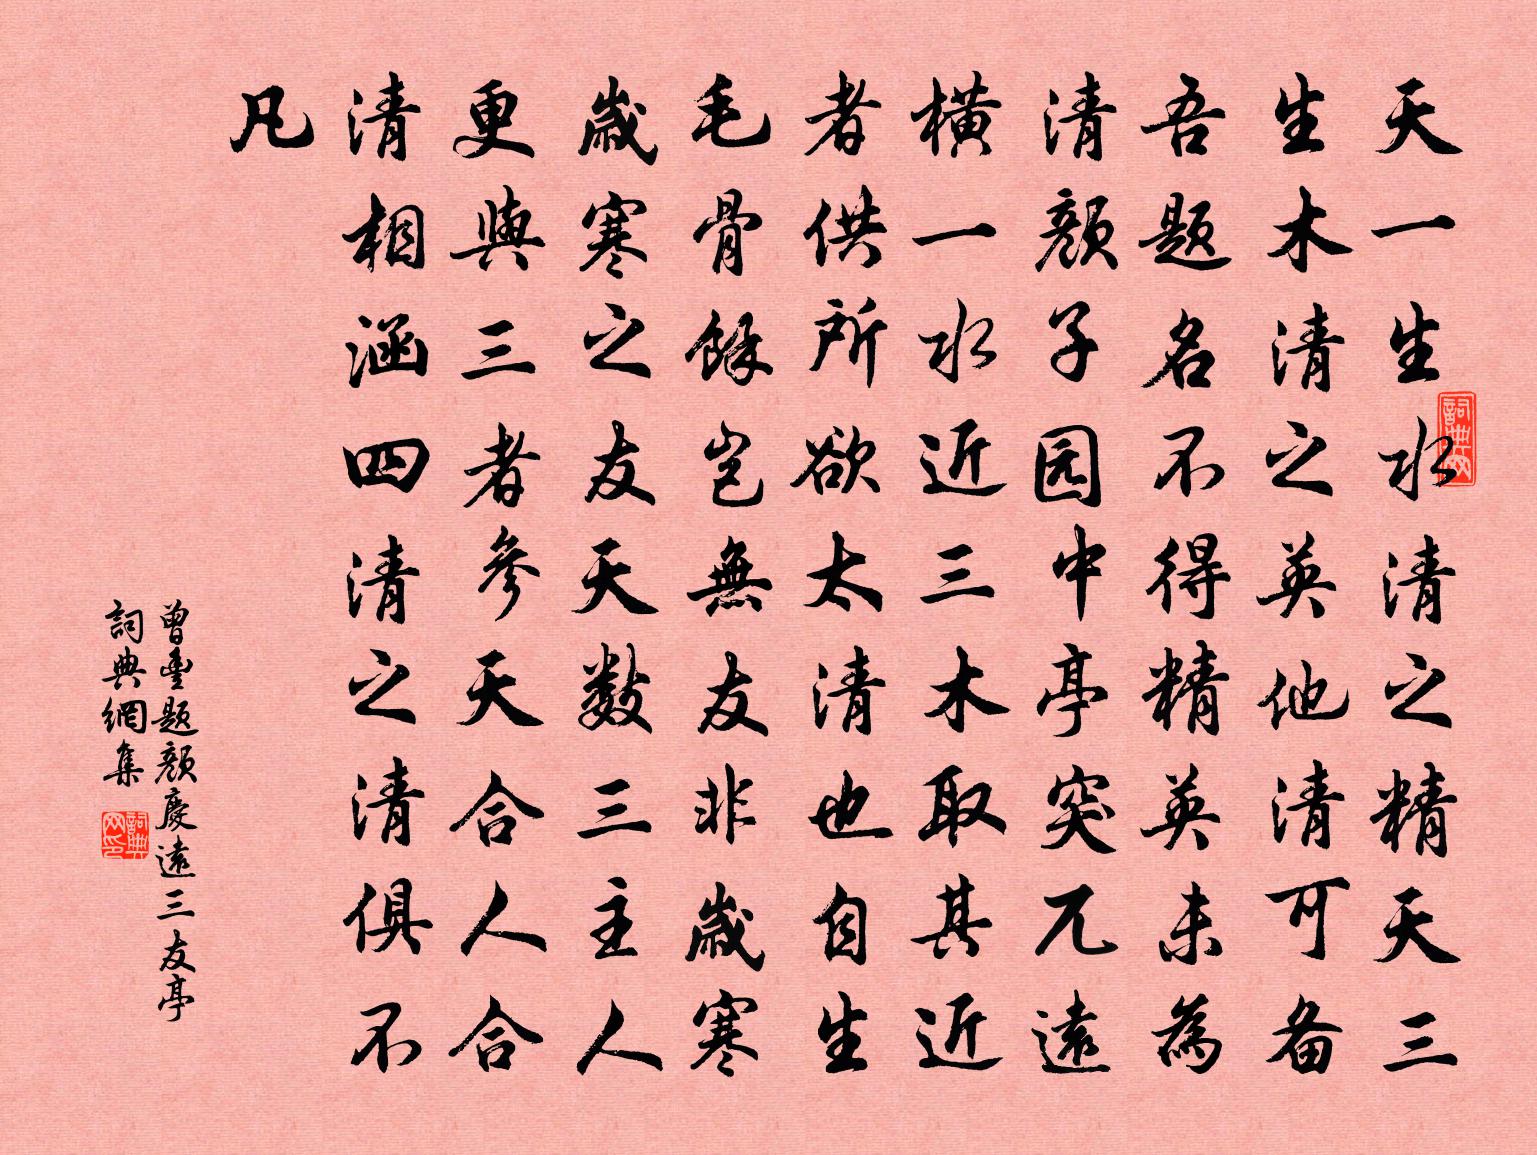 天一生水清之精天三
生木清之英他清可备
吾题名不得精英未為
清颜子园中亭突兀遠
橫一水近三木取其近
者供所欲太清也自生
毛骨餘岂無友非歲寒
歲寒之友天数三主人
更與三者參天合人合
清相涵四清之清俱不
凡
曾豊题颜慶遠三友亭
詞典網集
詞典网
詞典网印